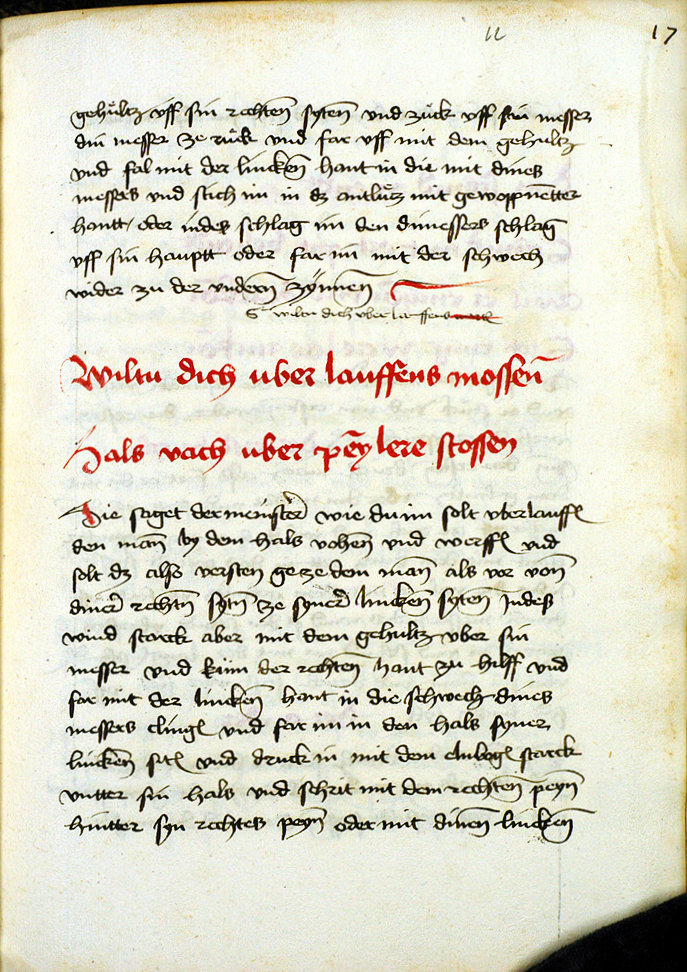 11
17
gehu̓ltz vff sin rechten̄ syten̄ vnd zuck vff sin messer
din messer ze ruͤk vnd far vff mit dem gehieltz
vnd fal mit der lincken̄ hant in die mit dines
messers vnd stich im in dz antluͤtz mit gewoppnetter
hantt / oder indes schlag im den dimessers schlag
vff sin hauptt oder far im mit der schwech
wider zu der vndern̄ zÿnnen̄
wiltu dich uber lauffens
Wiltu dich uber lauffens mossen̄
Hals vach uber pēylere stossen
Hie saget der meinster̄ wie du im solt vberlauffen
den man̄ by dem hals vohen̄ vnd werffen vnd
solt dz also versten ge ze dem man̄ als vor von̄
diner̄ rechtn̄ sytn̄ ze syner̄ lincken̄ syten̄ Indes
wind starck aber mit dem gehultz vber sin
messer vnd kum der rechten̄ hant zu hilff vnd
far mit der lincken̄ hant in die schwech dines
messers clingen vnd far im in den hals syner
lincken̄ siten vnd druck in mit dem elnbogen starck
vntter sin hals vnd schrit mit dem rechten̄ peyn̄
hintter syn rechtes peyn̄ oder mit dinen̄ lincken̄